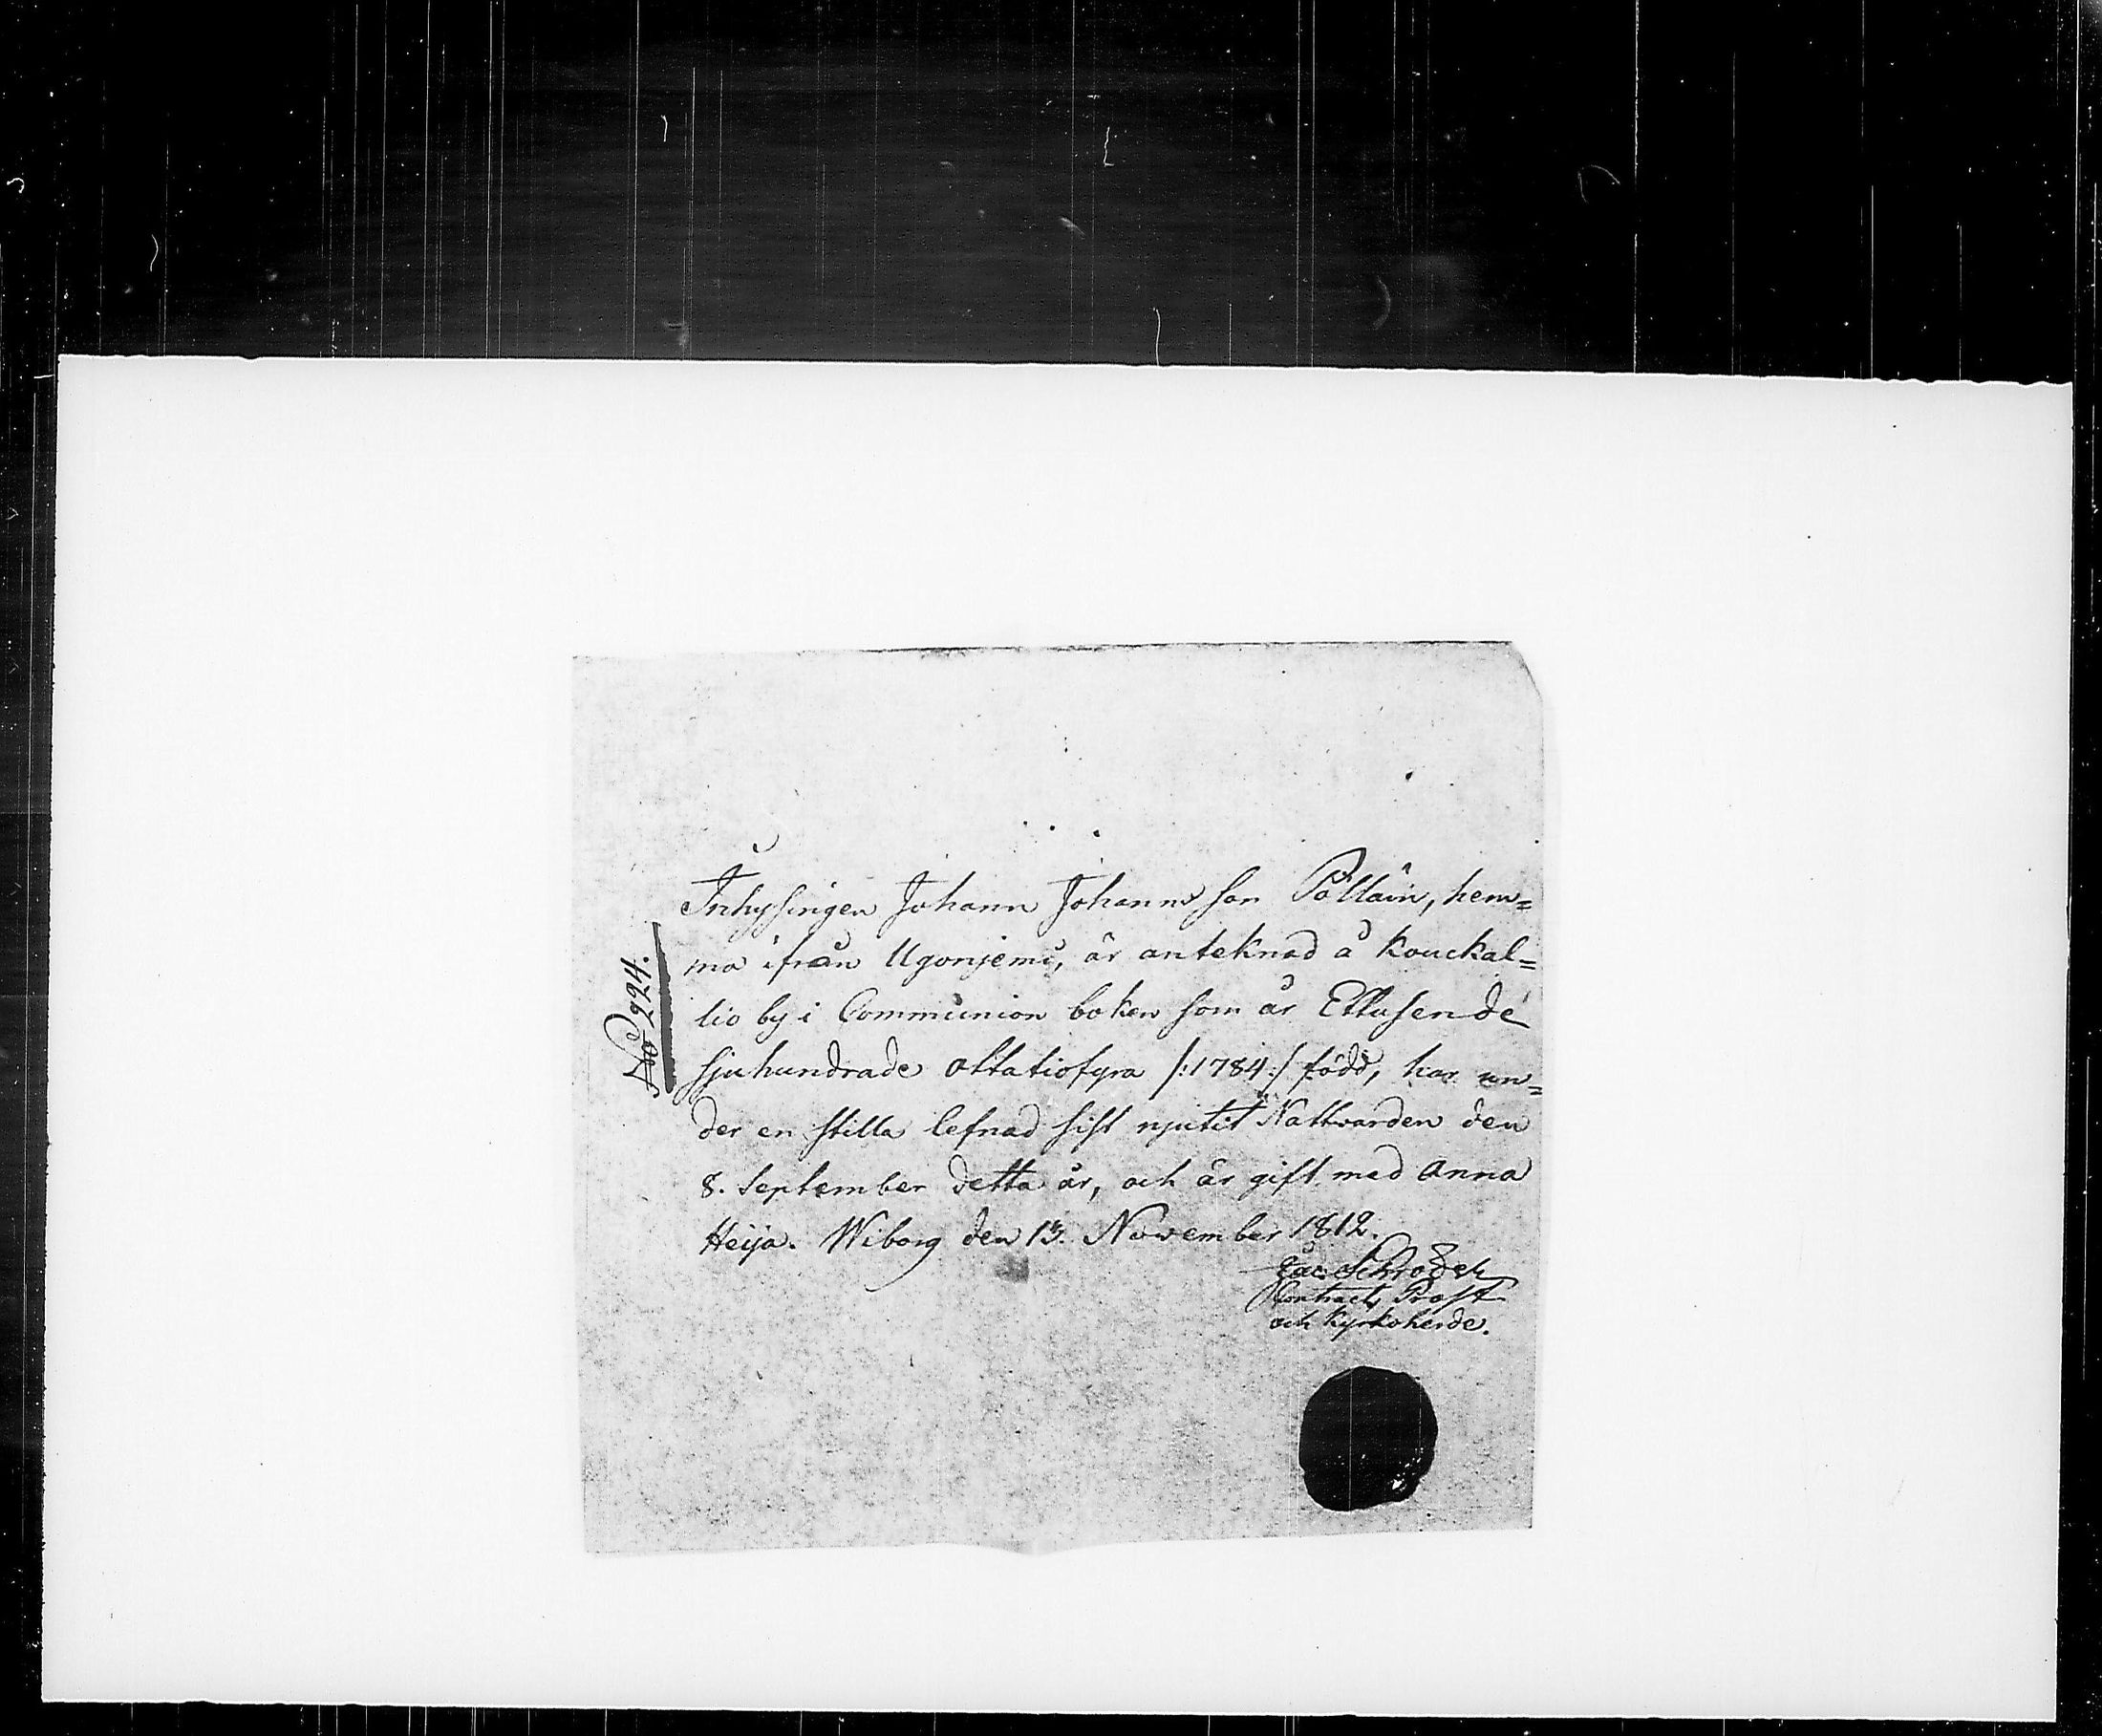 No 924.
Inhysingen Johann Johannsson Pölläin, hem=
ma ifrån Ugonjemi, är anteknad å Kouckal=
lio by i Communion boken som år Ettusende
sjuhundrade ottatiofyra /:1784:/ född, har un=
der en stilla lefnad sist njutit Nattvarden den
8. September detta år, och är gift med Anna
Heija. Wiborg den 13. November 1812.
Jac. Schroder
Contracts Prost
och Kyrkoherde.